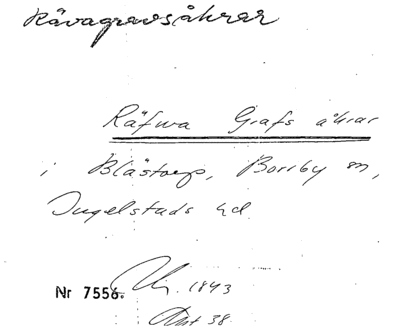 Rävagravsåkrar
Räfwa Grafs åkrar
i Blästorp, Borrby sn,
Ingelstads hd
Nr 7556. 1843
Akt 38